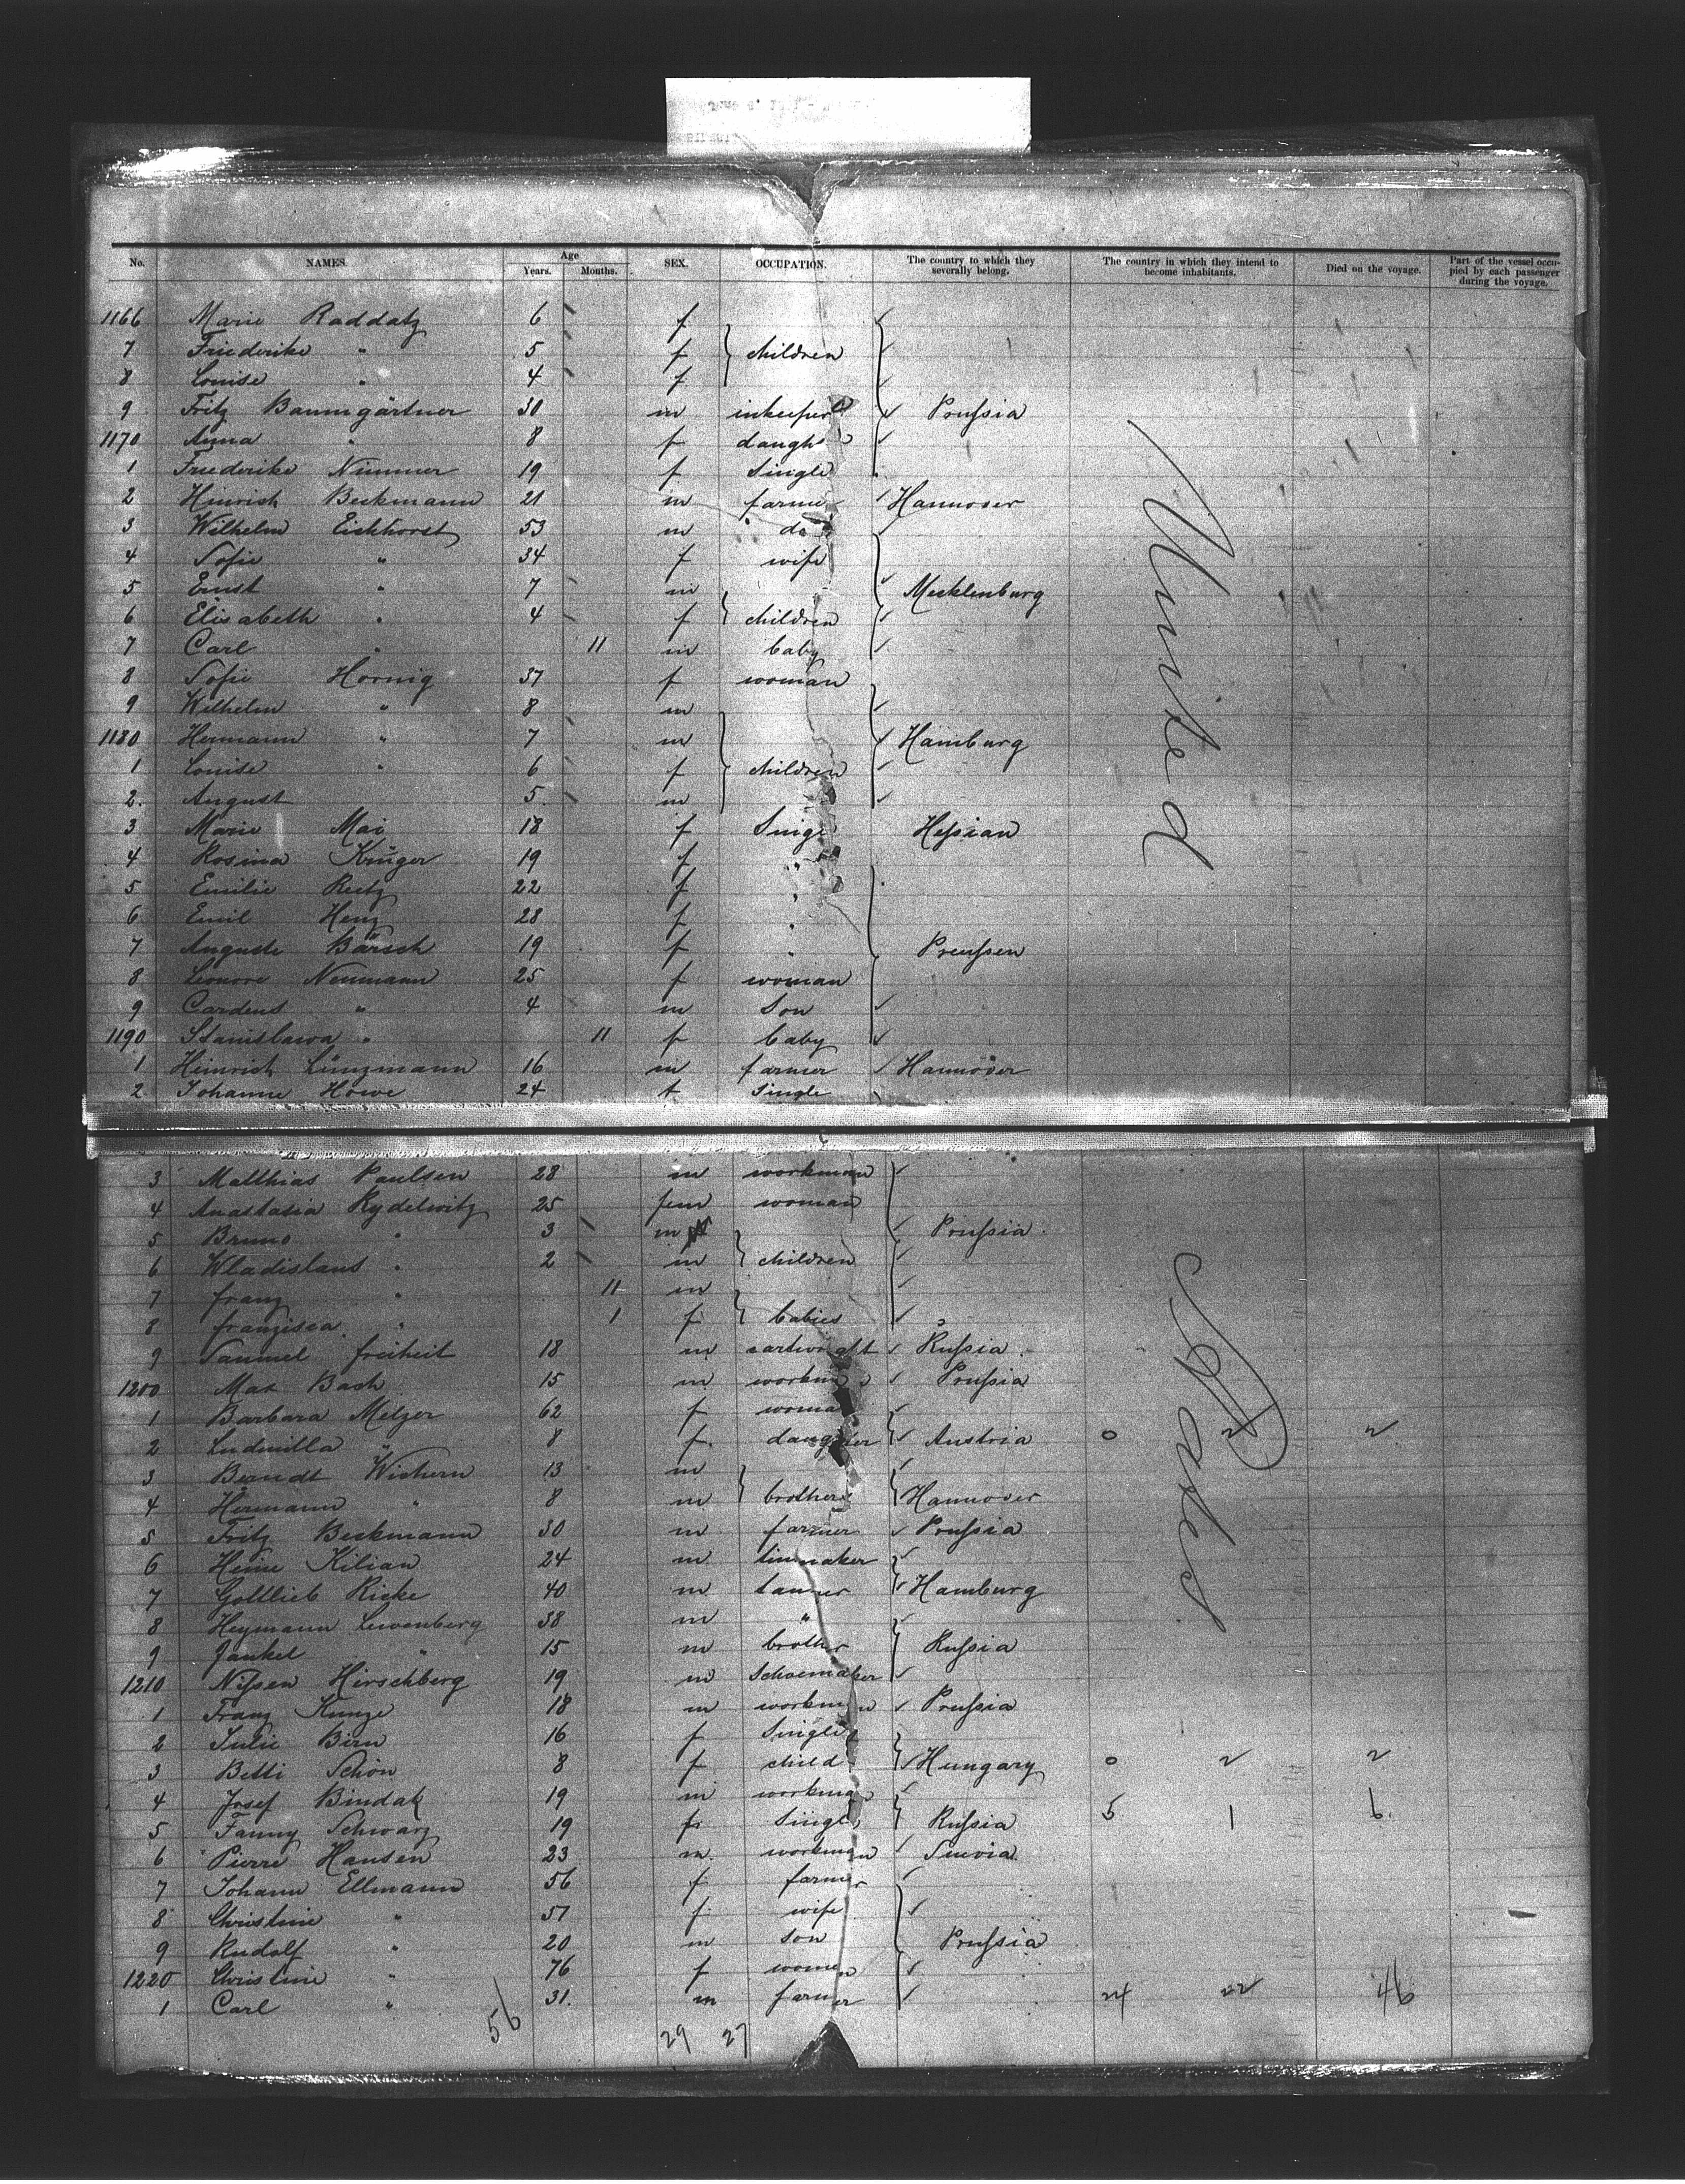 No. NAMES. Age Years. Months. SEX. OCCUPATION. The country to which they severally belong. The country in which they intend to become inhabitants. Died on the voyage. Part of the vessel occupied by each passenger during the voyage.
1166 Marie Raddatz 6 f
7 Friederike " 5 f children
8 Louise " 4 f
9 Fritz Baumgärtner 30 m inkeeper Prussia
1170 Anna " 8 f daugh
1 Friederike Nimmer 19 f Single
2 Hinrich Beckmann 21 m farmer Hannover
3 Wilhelm Eickhorst 53 m do
4 Sofie " 34 f wife
5 Ernst " 7 m Mecklenburg
6 Elisabeth " 4 f children
7 Carl " 11 m baby
8 Sofie Hornig 37 f woman
9 Wilhelm " 8 m
1180 Hermann " 7 m Hamburg
1 Louise " 6 f children
2. August 5. m
3 Marie Mai 18 f Singl Hessian
4 Rosina Krüger 19 f "
5 Emilie Reetz 22 f "
6 Emil Henz 28 f "
7 Auguste Bärsch 19 f " Preussen
8 Leonore Neumann 25 f woman
9 Cardens " 4 m Son
1190 Stanislawa " 11 f baby
1 Heinrich Lünzmann 16 m farmer Hannover
2. Johanne Höwe 24 f Single
United
3 Matthias Paulsen 28 m workman
4 Anastasia Rydelwitz 25 fem woman
5 Bruno " 3 m Prussia
6 Wladislaus " 2 m children
7 franz " 11 m
8 franzisca " 1 f babies
9 Sammel freiheit 18 m Russia
1200 Max Bach 15 m workm Prussia
1 Barbara Melzer 62 f woma
2 Ludmilla " 8 f. daughter Austria 0 2 2
3 Berndt Wichern 13 m
4 Hermann " 8 m brothers Hannover
5 Fritz Beckmann 30 m farmer Prussia
6 Heine Kilian 24 m tinmaker
7 Gottlieb Ricke 40 m tanner Hamburg
8 Heymann Lewenberg 38 m "
9 Jankel " 15 m brother Russia
1210 Nissen Hirschberg 19 m Schoemaker
1 Franz Kunze 18 m workman Prussia
2 Julie Birn 16 f Single
3 Betti Schön 8 f child Hungary 0 2 2
4 Josef Bindak 19 m workman
5 Fanny Schwarz 19 f Singl Russia 5 1 6.
6 Pierre Hansen 23 m. workman
7 Johann Ellmann 56 f farmer
8 Christine " 57 f wife
9 Rudolf " 20 m son Prussia
1220 Christine " 76 f women
1 Carl " 31. m farmer 24 22 46
56 29 27
States